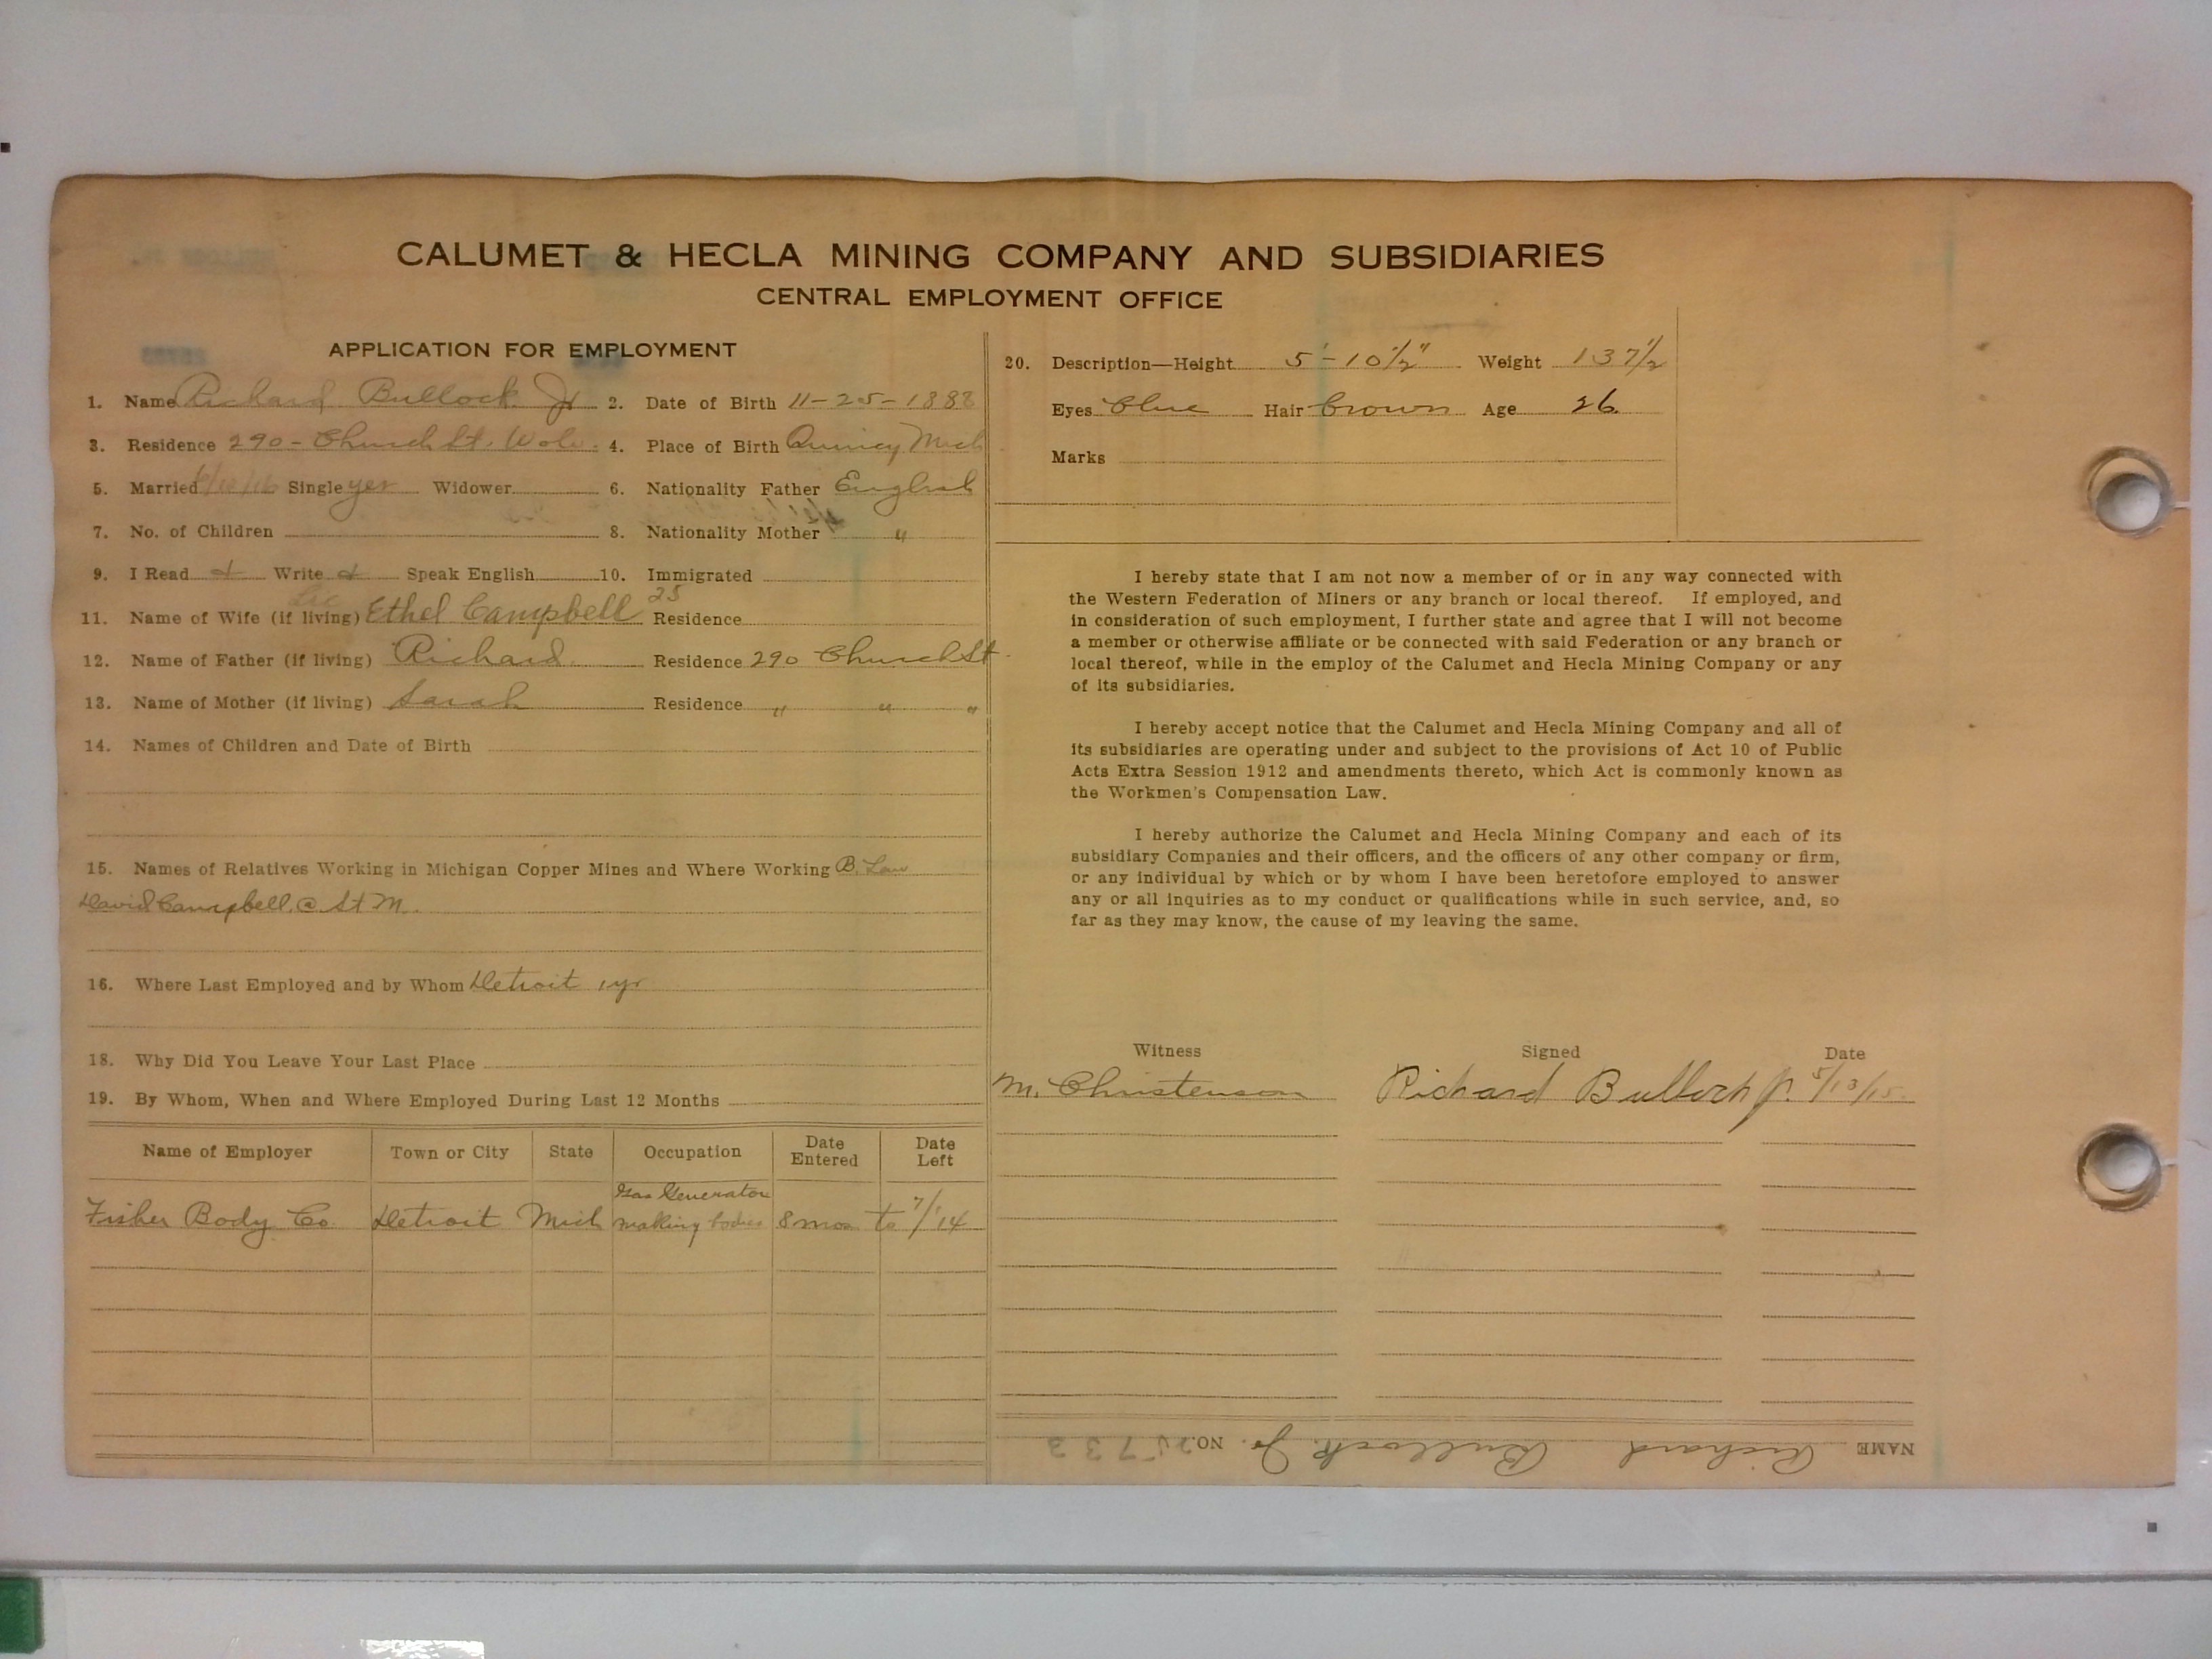 CALUMET & HECLA MINING COMPANY AND SUBSIDIARIES
CENTRAL EMPLOYMENT OFFICE
APPLICATION FOR EMPLOYMENT
1. Name Richard Bullock Jr 2. Date of Birth 11-25-1888
3. Residence 290 - Church St. Wolv. 4. Place of Birth Quincy Mich
5. Married Single yes Widower 6. Nationality Father English
7. No. of Children 8. Nationality Mother "
9. I Read Write Speak English 10. Immigrated
25
11. Name of Wife (if living) Ethel Campbell Residence
12. Name of Father (if living) Richard Residence 290 Church St
13. Name of Mother (if living) Sarah Residence " " "
14. Names of Children and Date of Birth
15. Names of Relatives Working in Michigan Copper Mines and Where Working B. Law
David Campbell @ St M.
16. Where Last Employed and by Whom Detroit 1 yr
18. Why Did You Leave Your Last Place
19. By Whom, When and Where Employed During Last 12 Months
Name of Employer Town or City State Occupation Date Entered Date Left
Gas Generator
Fisher Body Co. Detroit Mich making bodies 8 mos to 7/'14
20. Description—Height 5'-10½" Weight 137½
Eyes blue Hair brown Age 26
Marks
I hereby state that I am not now a member of or in any way connected with
the Western Federation of Miners or any branch or local thereof. If employed, and
in consideration of such employment, I further state and agree that I will not become
a member or otherwise affiliate or be connected with said Federation or any branch or
local thereof, while in the employ of the Calumet and Hecla Mining Company or any
of its subsidiaries.
I hereby accept notice that the Calumet and Hecla Mining Company and all of
its subsidiaries are operating under and subject to the provisions of Act 10 of Public
Acts Extra Session 1912 and amendments thereto, which Act is commonly known as
the Workmen's Compensation Law.
I hereby authorize the Calumet and Hecla Mining Company and each of its
subsidiary Companies and their officers, and the officers of any other company or firm,
or any individual by which or by whom I have been heretofore employed to answer
any or all inquiries as to my conduct or qualifications while in such service, and, so
far as they may know, the cause of my leaving the same.
Witness Signed Date
M. Christenson Richard Bullock Jr. 5/13/15.
NAME Richard Bullock Jr. NO. 25733